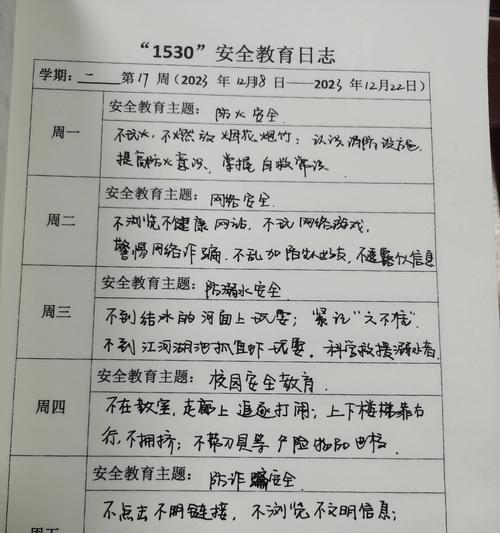 “1530”安全教育日志
学期：二 第17周（2023年12月18日——2023年12月22日）
周一
安全教育主题：防火安全
不玩火，不燃放烟花炮竹；认识消防设施
提高防火意识，掌握自救常识
周二
安全教育主题：网络安全
不浏览不健康网站，不玩网络游戏，
警惕网络诈骗.不乱加陌生人，不透露个人信息
周三
安全教育主题：防溺水安全
不到结冰的河面上玩耍；紧记“六不准”
不到江河湖池抓鱼虾玩耍。科学救援溺水者.
周四
安全教育主题：校园安全教育.
不在教室，走廊上追逐打闹；上下楼梯靠右
行，不拥挤；不带刀具等危险物品进校
周五
安全教育主题：防诈骗安全
不点击不明链接，不浏览不文明信息；